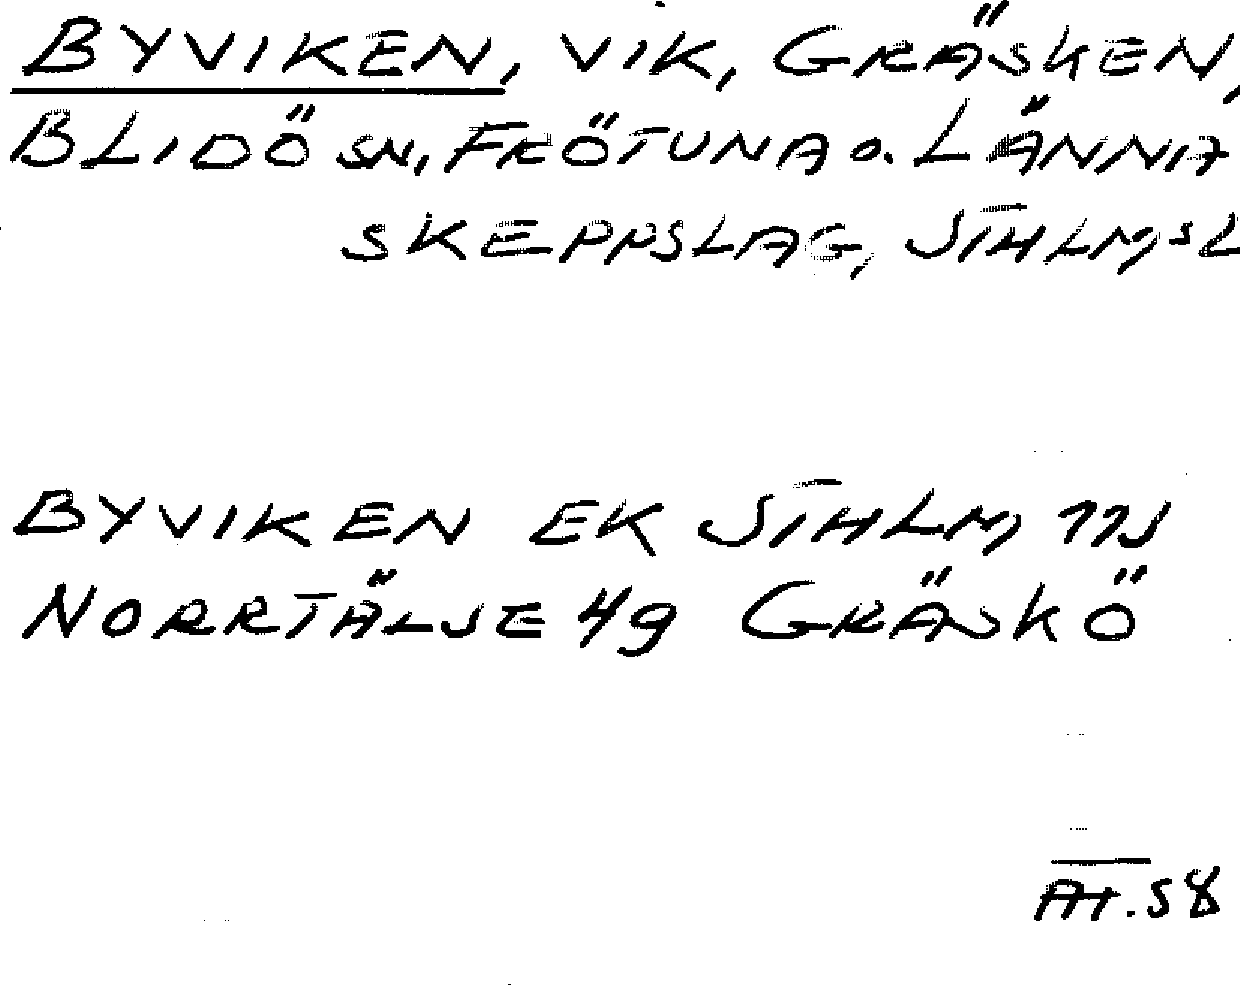 BYVIKEN, VIK, GRÄSKEN,
BLIDÖ SN, FRÖTUNA O. LÄNNA
SKEPPSLAG, STHLMS L
BYVIKEN EK STHLM 11J
NORRTÄLJE 49 GRÄSKÖ
AH. 58